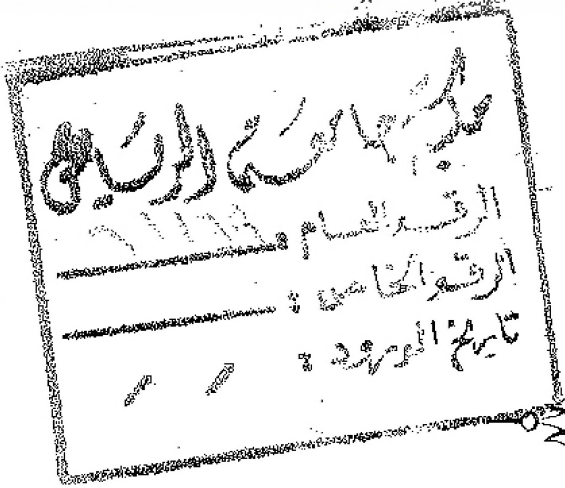 مكتبة جامعة الرياض
الرقم العام :
الرقم الخاص :
تاريخ الورود : / /